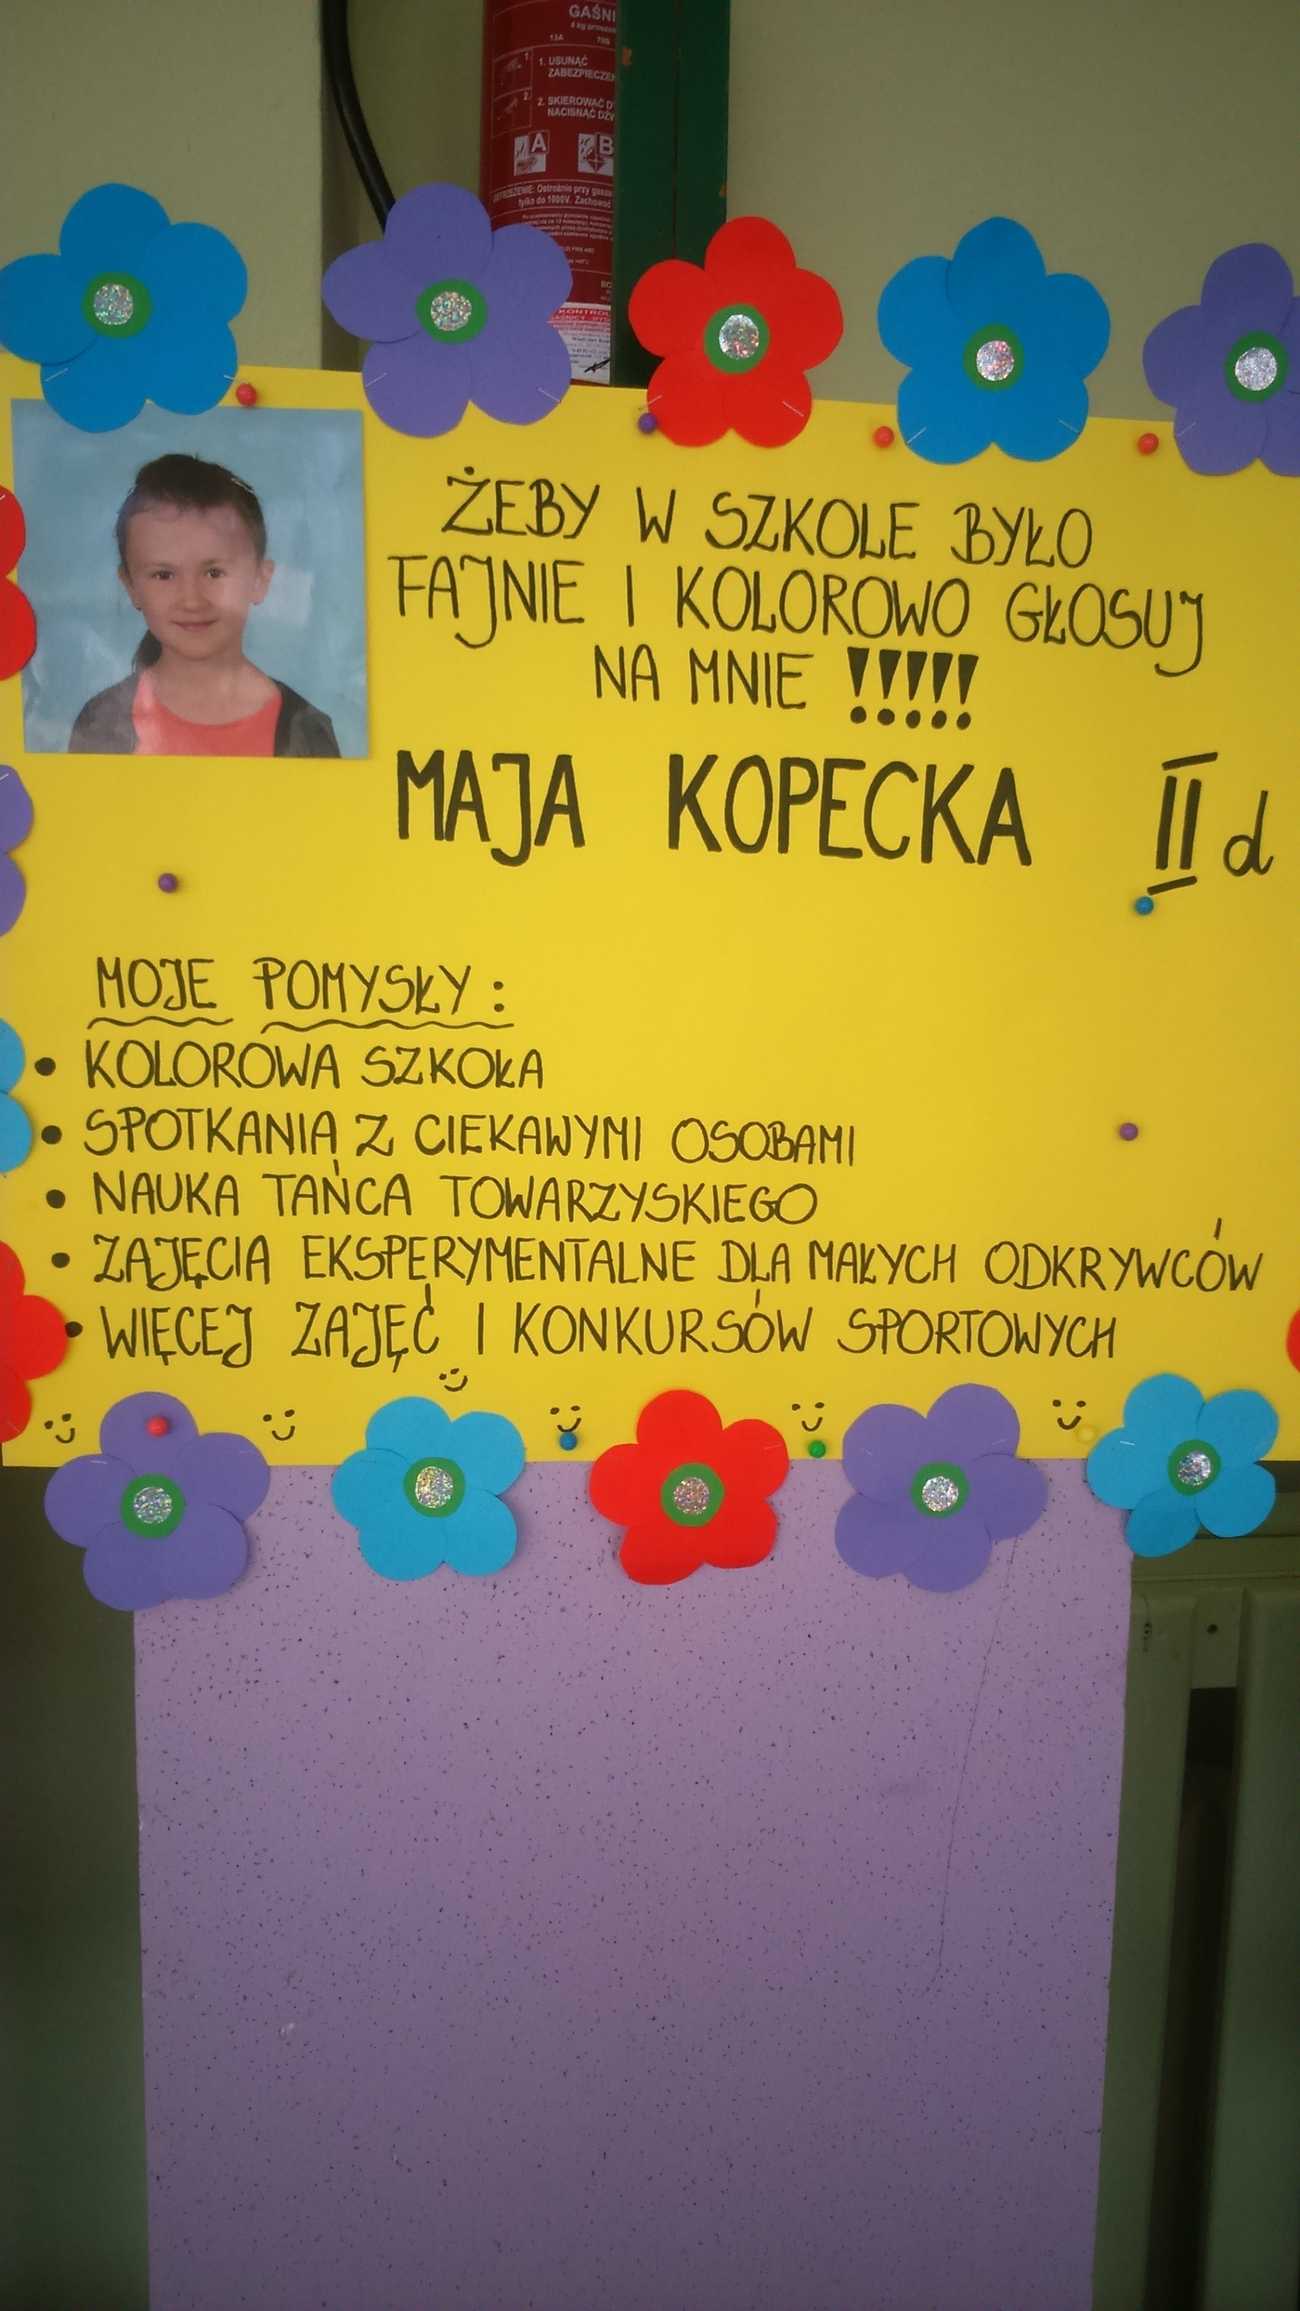 GAŚNI
1. USUNĄĆ
ZABEZPIECZEN
2. SKIEROWAĆ D
NACISNĄĆ DŹW
A B
Ostrożnie przy gasz
tylko do 1000V. Zachować
ŻEBY W SZKOLE BYŁO
FAJNIE I KOLOROWO GŁOSUJ
NA MNIE !!!!!
MAJA KOPECKA II d
MOJE POMYSŁY:
• KOLOROWA SZKOŁA
• SPOTKANIA Z CIEKAWYMI OSOBAMI
• NAUKA TAŃCA TOWARZYSKIEGO
• ZAJĘCIA EKSPERYMENTALNE DLA MAŁYCH ODKRYWCÓW
• WIĘCEJ ZAJĘĆ I KONKURSÓW SPORTOWYCH